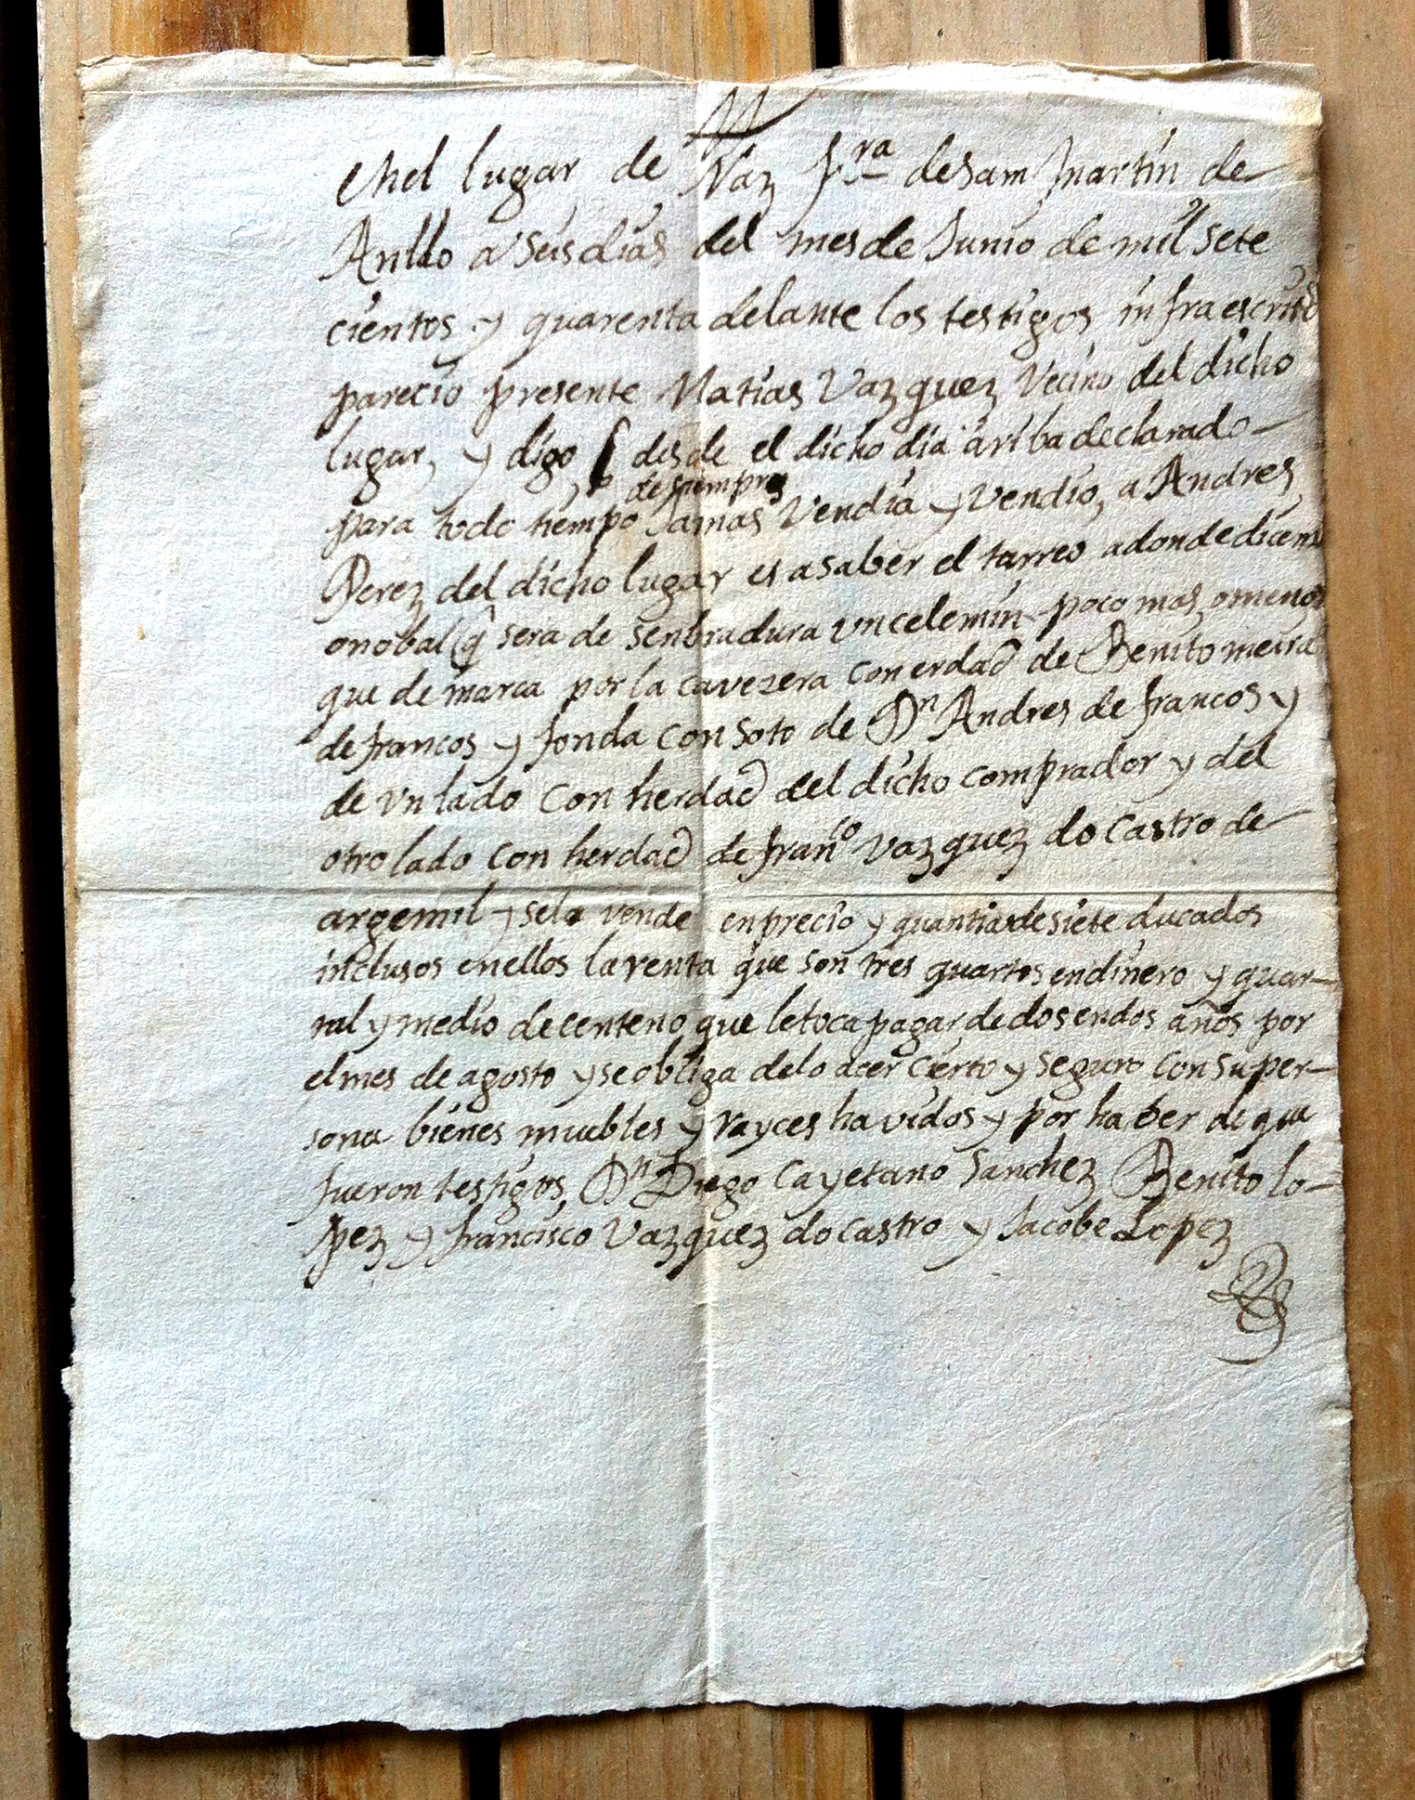 Enel lugar de Naz f.ra de sam martin de
Anllo a seis dias del mes de Junio de mil sete
cientos y quarenta delante los testigos infraescritos
parecio presente Matias Vazquez Vecino del dicho
lugar, y digo desde el dicho dia ariba declarado
de siempre
para todo tiempo Jamas Vendia y Vendio, a Andres
Perez del dicho lugar es a saber el tarreo adonde dicem
onobal q̂ sera de senbradura un celemin poco mas omenos
que de marca por la cavezera con erdad de Benito meira
de francos y fonda con soto de Dn Andres de francos y
de un lado con herdad del dicho comprador y del
otro lado con herdad de franco Vazquez do Castro de
argemil y sela vende en precio y quantia de siete ducados
inclusos enellos la renta que son tres quartos en dinero y quar-
tal y medio de centeno que le toca pagar de dos en dos años por
el mes de agosto y se obliga de lo acer cierto y seguro con su per-
sona bienes muebles y rayces havidos y por haber de que
fueron testigos Dn Diego Cayetano Sanchez Benito lo-
pez y francisco Vazquez do Castro y Jacobe Lopez